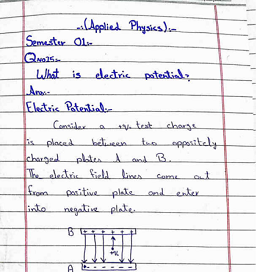 -:(Applied Physics):-
Semester 01:-
QNo15:-
What is electric potential?
Ans:-
Electric Potential:-
Consider a +ve test charge
is placed between two oppositely
charged plates A and B.
The electric field lines come out
from positive plate and enter
into negative plate.
B + + + + +
A - - - - -